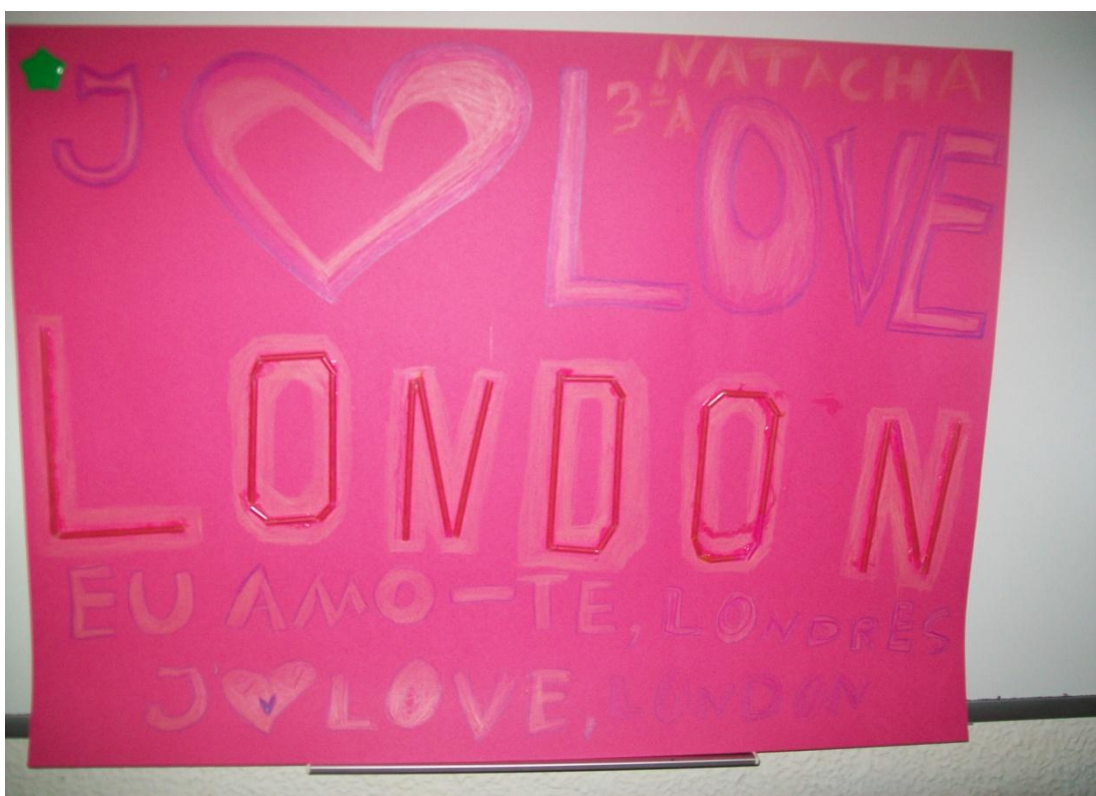 NATACHA
3ºA
J ♥ LOVE
LONDON
EU AMO-TE, LONDRES
J ♥ LOVE, LONDON